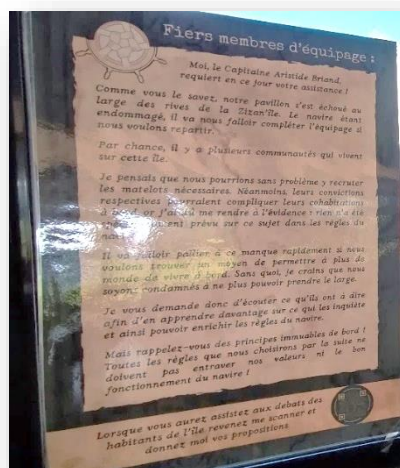 Fiers membres d'équipage :
Moi, le Capitaine Aristide Briand,
requiert en ce jour votre assistance !
Comme vous le savez, notre pavillon s'est échoué au
large des rives de la Zizan'île. Le navire étant
endommagé, il va nous falloir compléter l'équipage si
nous voulons repartir.
Par chance, il y a plusieurs communautés qui vivent
sur cette île.
Je pensais que nous pourrions sans problème y recruter
les matelots nécessaires. Néanmoins, leurs convictions
respectives pourraient compliquer leurs cohabitations
à bord, or j'ai dû me rendre à l'évidence : rien n'a été
prévu sur ce sujet dans les règles du
Il va falloir pallier à ce manque rapidement si nous
voulons trouver un moyen de permettre à plus de
monde de vivre à bord. Sans quoi, je crains que nous
soyons condamnés à ne plus pouvoir prendre le large.
Je vous demande donc d'écouter ce qu'ils ont à dire
afin d'en apprendre davantage sur ce qui les inquiète
et ainsi pouvoir enrichir les règles du navire.
Mais rappelez-vous des principes immuables de bord !
Toutes les règles que nous choisirons par la suite ne
doivent pas entraver nos valeurs ni le bon
fonctionnement du navire !
Lorsque vous aurez assistez aux debats des
habitants de l'île revenez me scanner et
donnez moi vos propositions